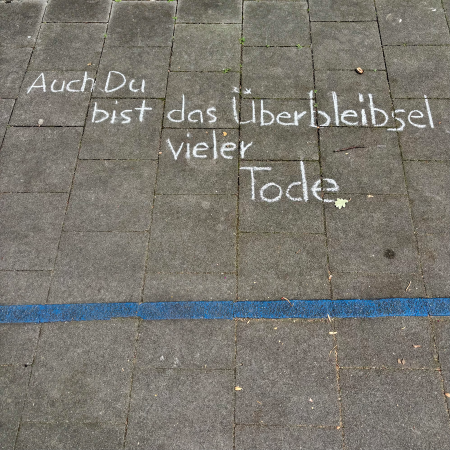 Auch Du
bist das Überbleibsel
vieler
Tode